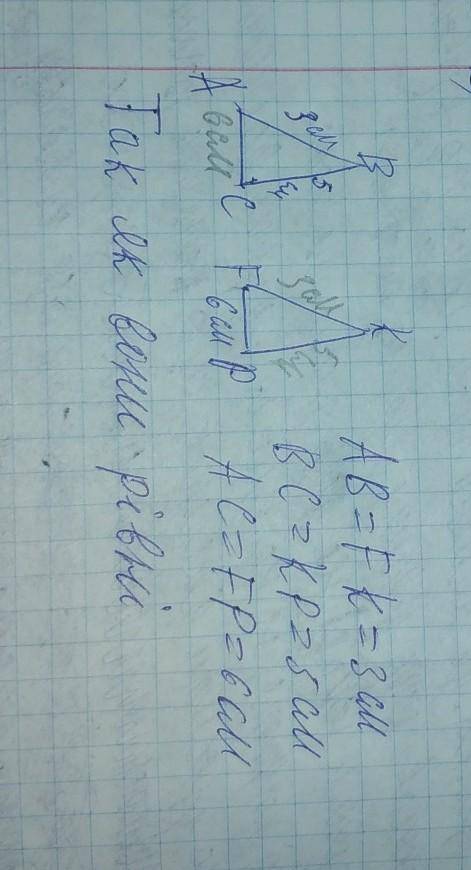 B
K
3 см
5 см
3 см
5 см
A
6 см
C
F
6 см
P
AB = FK = 3 см
BC = KP = 5 см
AC = FP = 6 см
Так як вони рівні